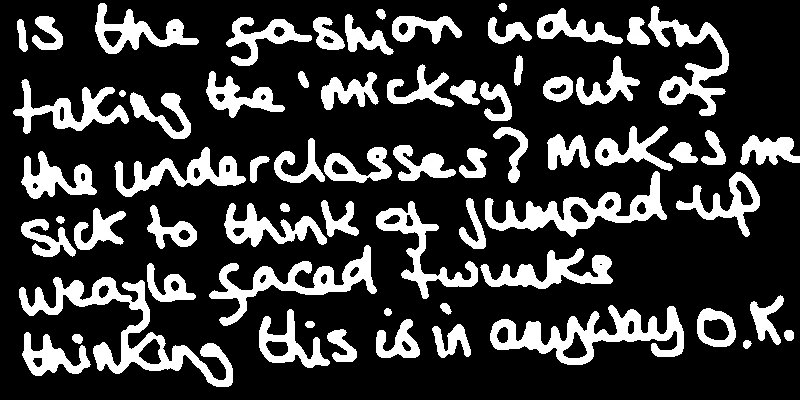 is the fashion industry
taking the 'mickey' out of
the underclasses? Makes me
sick to think of jumped-up
weazle faced twunks
thinking this is in anyway O.K.